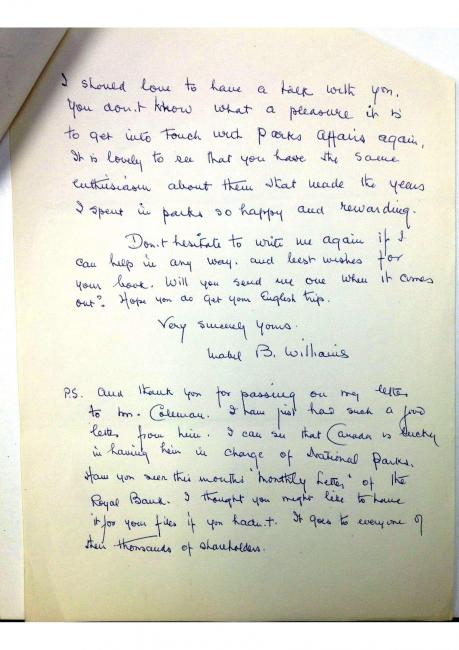 I should love to have a talk with you.
You don't know what a pleasure it is
to get into touch with Parks Affairs again.
It is lovely to see that you have the same
enthusiasm about them that made the years
I spent in parks so happy and rewarding.
Don't hesitate to write me again if I
can help in any way. and best wishes for
your book. Will you send me one when it comes
out? Hope you do get your English trip.
Very sincerely yours.
Mabel B. Williams
P.S. and thank you for passing on my letter
to Mr. Coleman. I have just had such a good
letter from him. I can see that Canada is lucky
in having him in charge of National Parks.
Have you seen this months "Monthly Letter" of the
Royal Bank. I thought you might like to have
it for your files if you hadn't. It goes to everyone of
their thousands of shareholders.